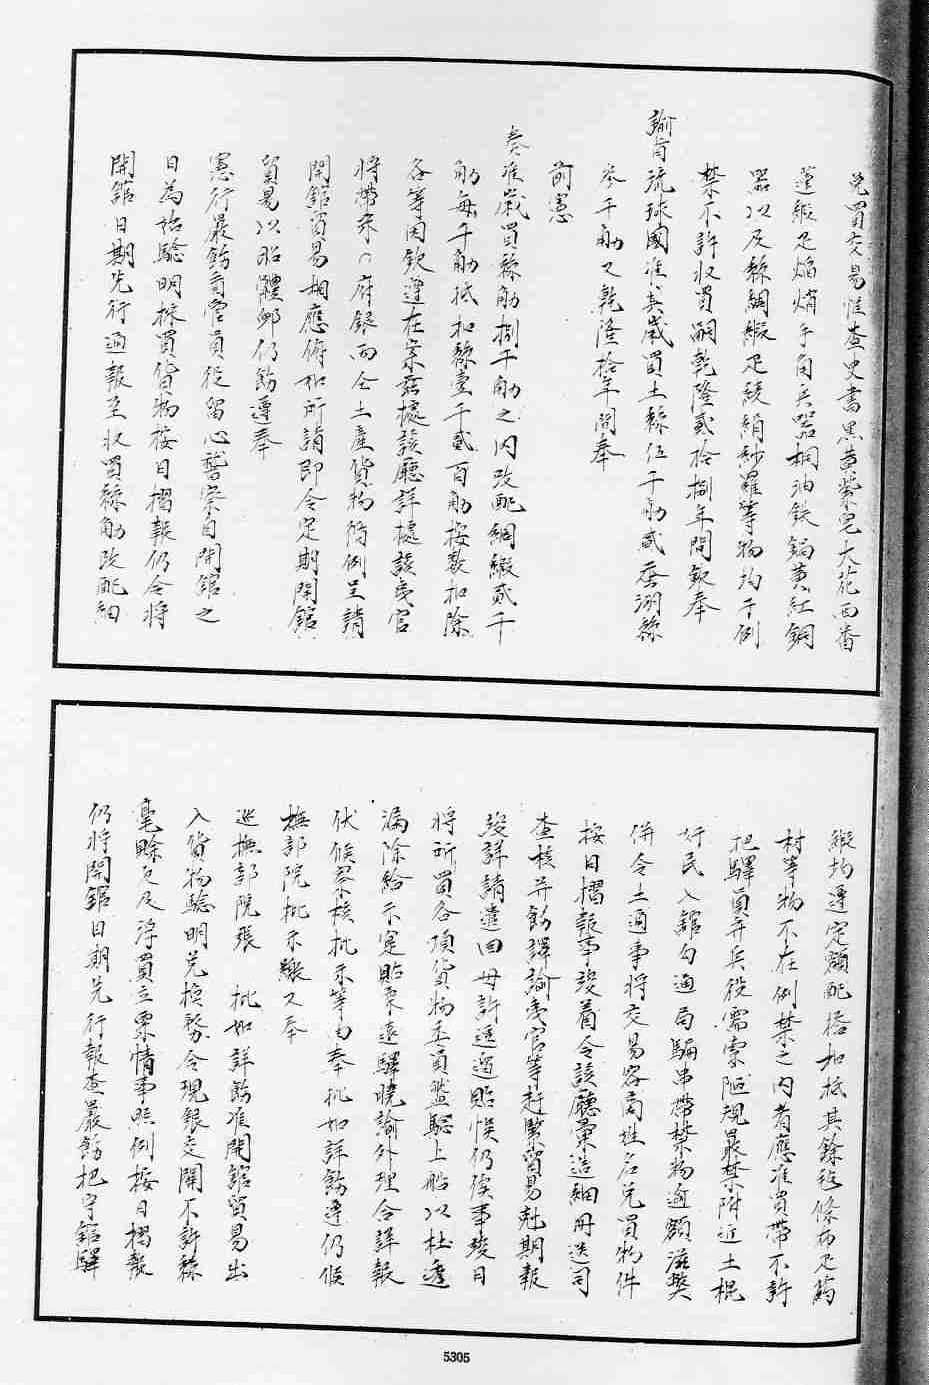 兌買交易惟查史書黑黃紫皂大花西番
蓮緞疋焰焇牛角兵器桐油鉄鍋黃紅銅
器以及絲綢緞疋綾絹紗羅等物均干例
禁不許收買嗣乾隆貳拾捌年間欽奉
諭旨琉球國准其歲買土絲伍千觔貳蚕湖絲
叁千觔又乾隆拾年間奉
前憲
奏准歲買絲觔捌千觔之內改配綢緞貳千
觔每千觔抵扣絲壹千貳百觔按數扣除
各等因欽遵在案茲據該廳詳據該夷官
將帶來司府銀兩仝土產貨物循例呈請
開館貿易相應俯如所請即令定期開館
貿易以昭體卹仍飭遵奉
憲行嚴飭看管員役留心警察自開館之
日為始驗明採買貨物按日摺報仍令將
開館日期先行通報至收買絲觔改配綢
緞均遵定額配搭扣抵其餘毯條布疋葯
材等物不在例禁之內者應准買帶不許
把驛員弁兵役需索陋規嚴禁附近土棍
奸民入館勾通局騙串帶禁物逾額滋獘
併令土通事將交易客商姓名兌買物件
按日摺報事竣着令該廳彙造細冊送司
查核并飭譯諭夷官等赶緊貿易尅期報
竣詳請遣回毋許逗遛貽悮仍俟事竣日
將所買各項貨物委員盤驗上船以杜透
漏除給示寔貼柔遠驛曉諭外理合詳報
伏候察核批示等由奉批如詳飭遵仍候
撫部院批示繳又奉
巡撫部院張　批如詳飭准開館貿易出
入貨物驗明兌換務令現銀交關不許絲
毫賒欠及浮買立票情事照例按日摺報
仍將開館日期先行報查嚴飭把守館驛
5305